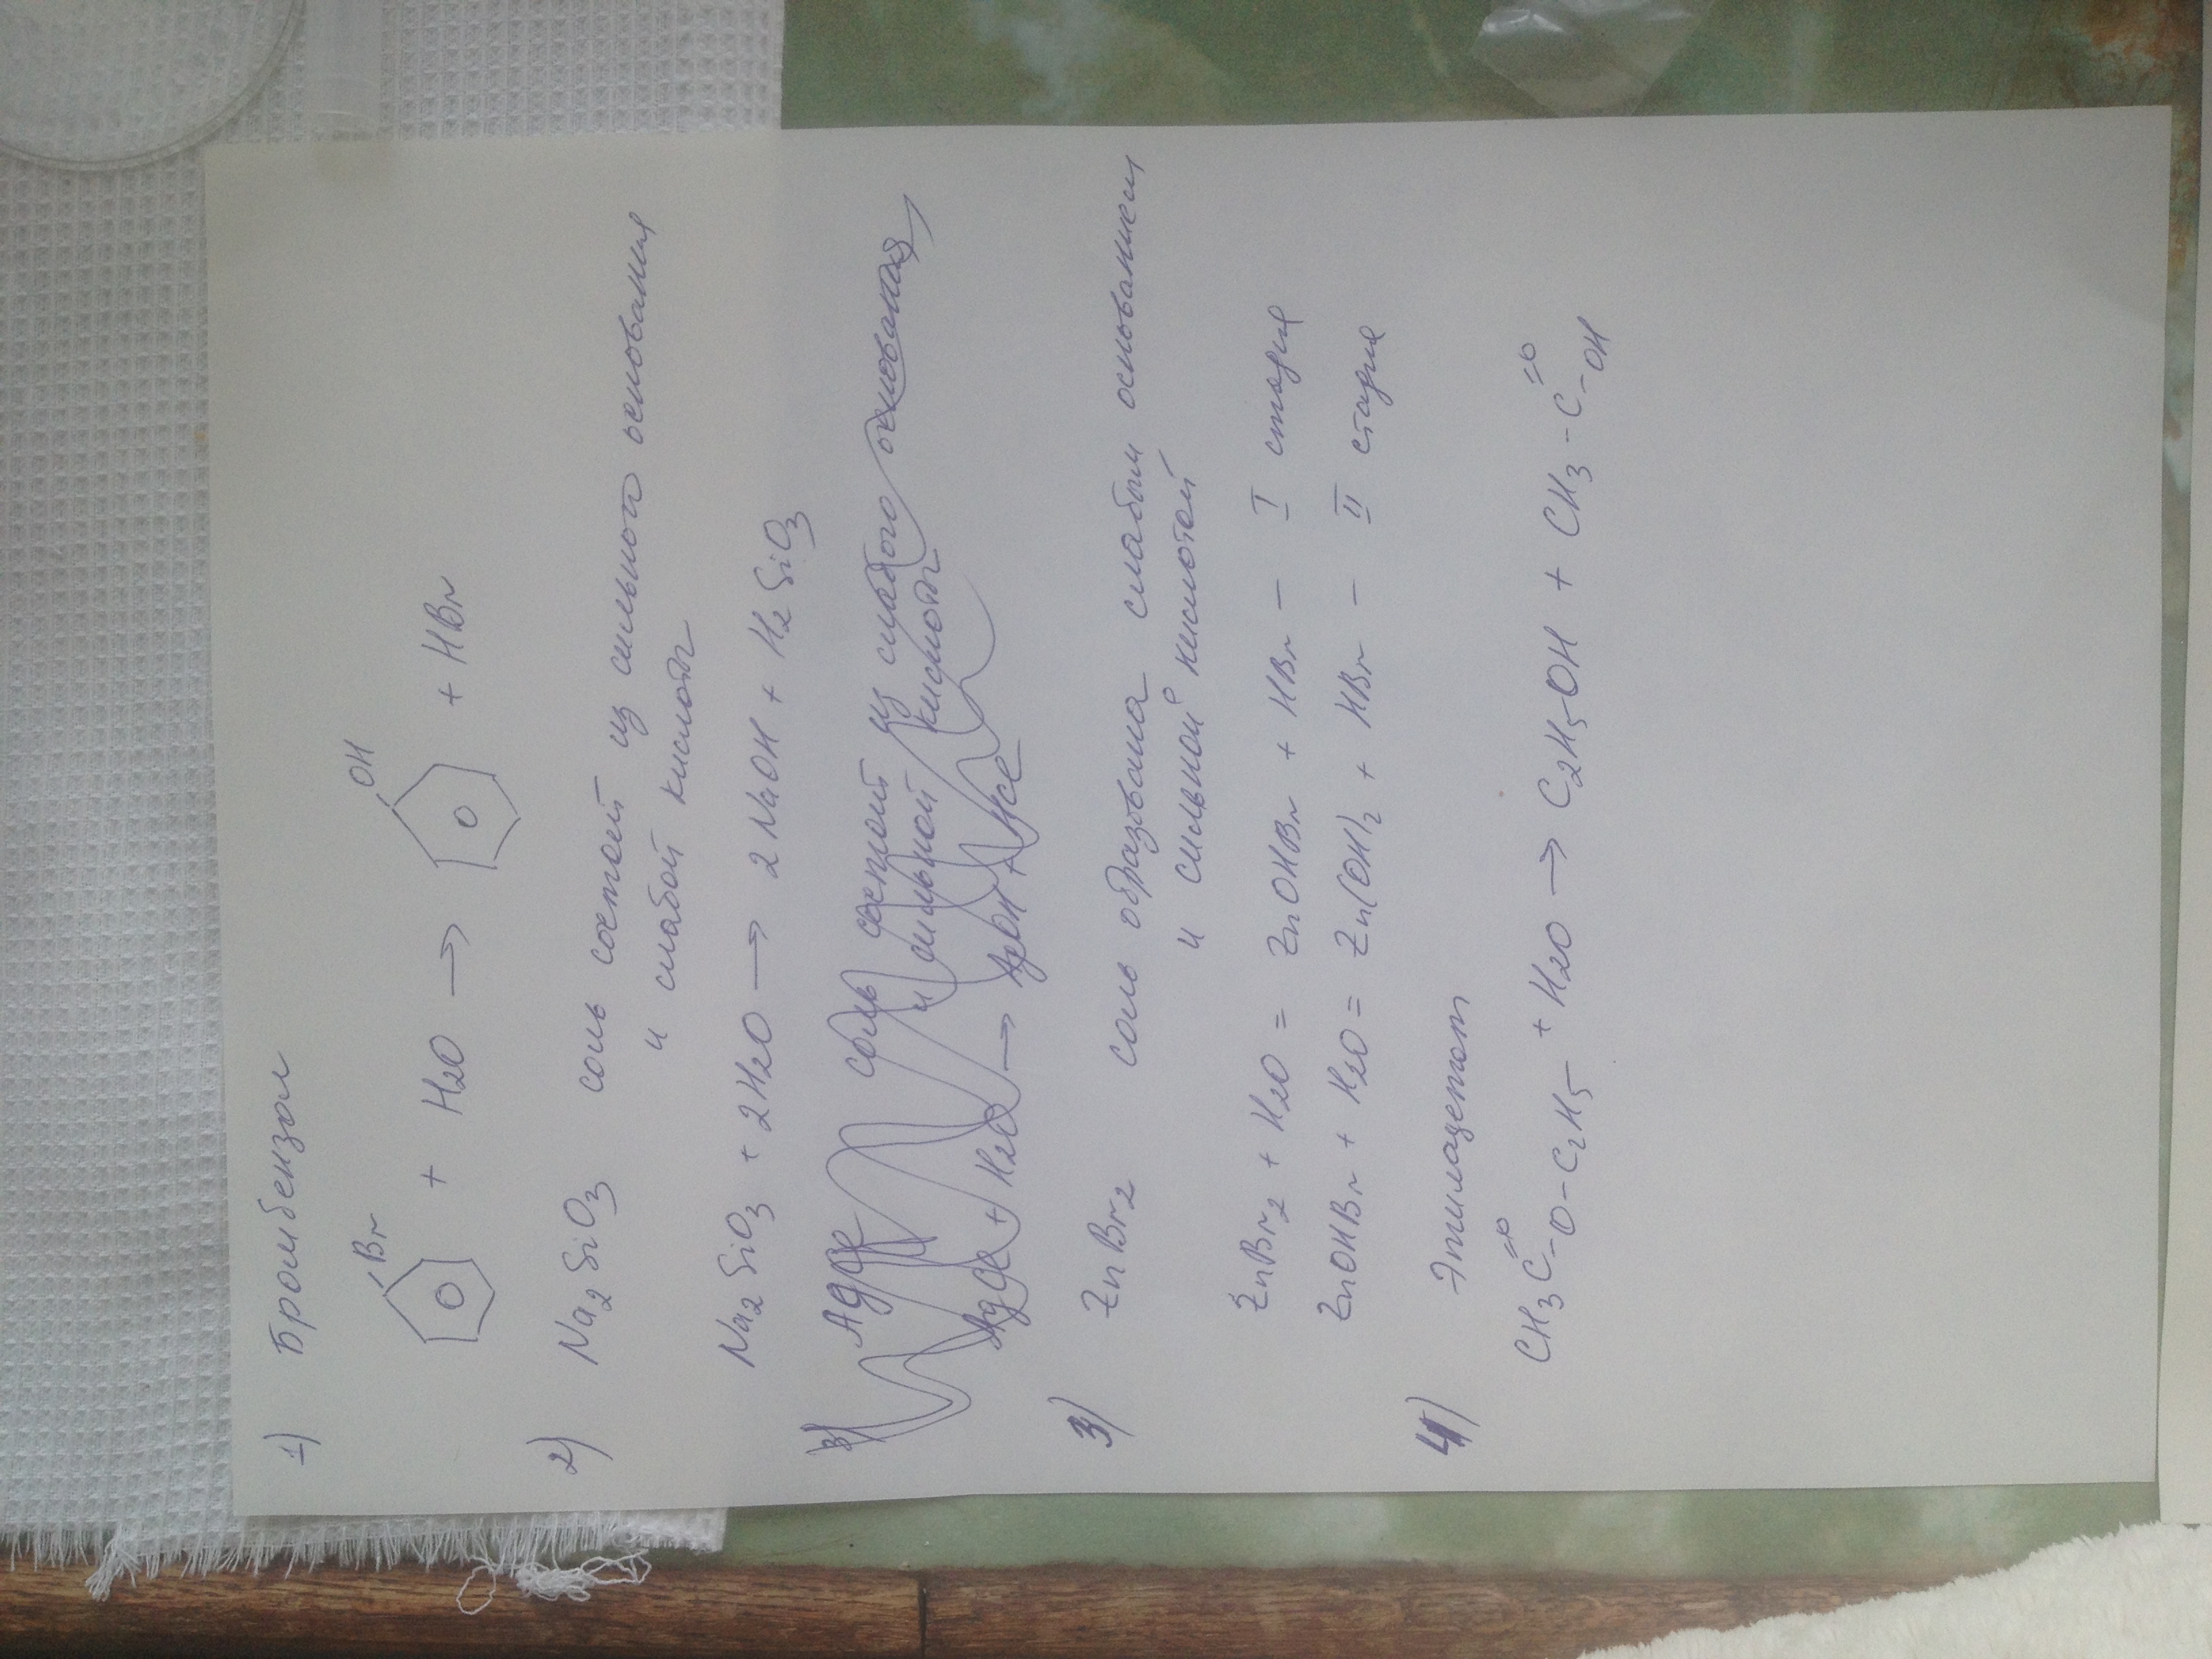 1) Бромбензол
Br OH
+ H2O → + HBr
2) Na2SiO3 соль состоит из сильного основания
и слабой кислоты
Na2SiO3 + 2H2O → 2NaOH + H2SiO3
3) соль состоит из слабого основания
и сильной кислоты
+ H2O →
3) ZnBr2 соль образована слабым основанием
и сильной кислотой
ZnBr2 + H2O = ZnOHBr + HBr — I стадия
ZnOHBr + H2O = Zn(OH)2 + HBr — II стадия
4) Этилацетат
CH3C=O-O-C2H5 + H2O → C2H5OH + CH3-C=O-OH